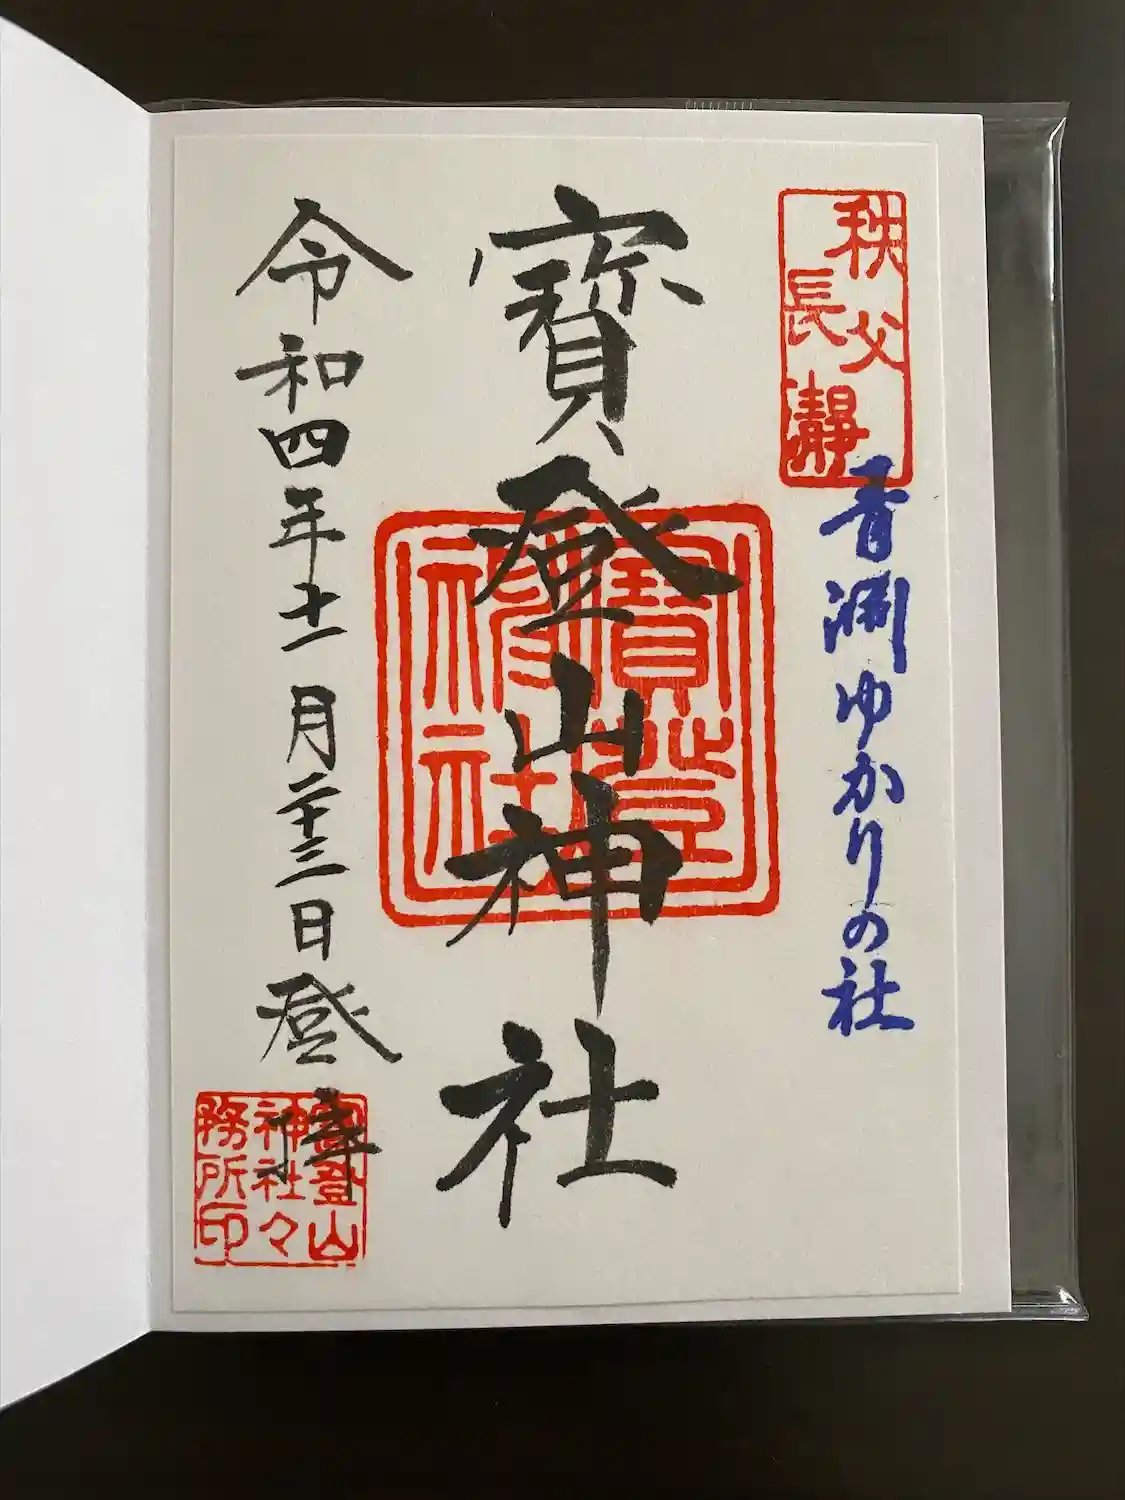 秩父
長瀞
青淵ゆかりの社
寶登山神社
寶登
神社
令和四年十一月二十三日登拝
登山
神社々
務所印